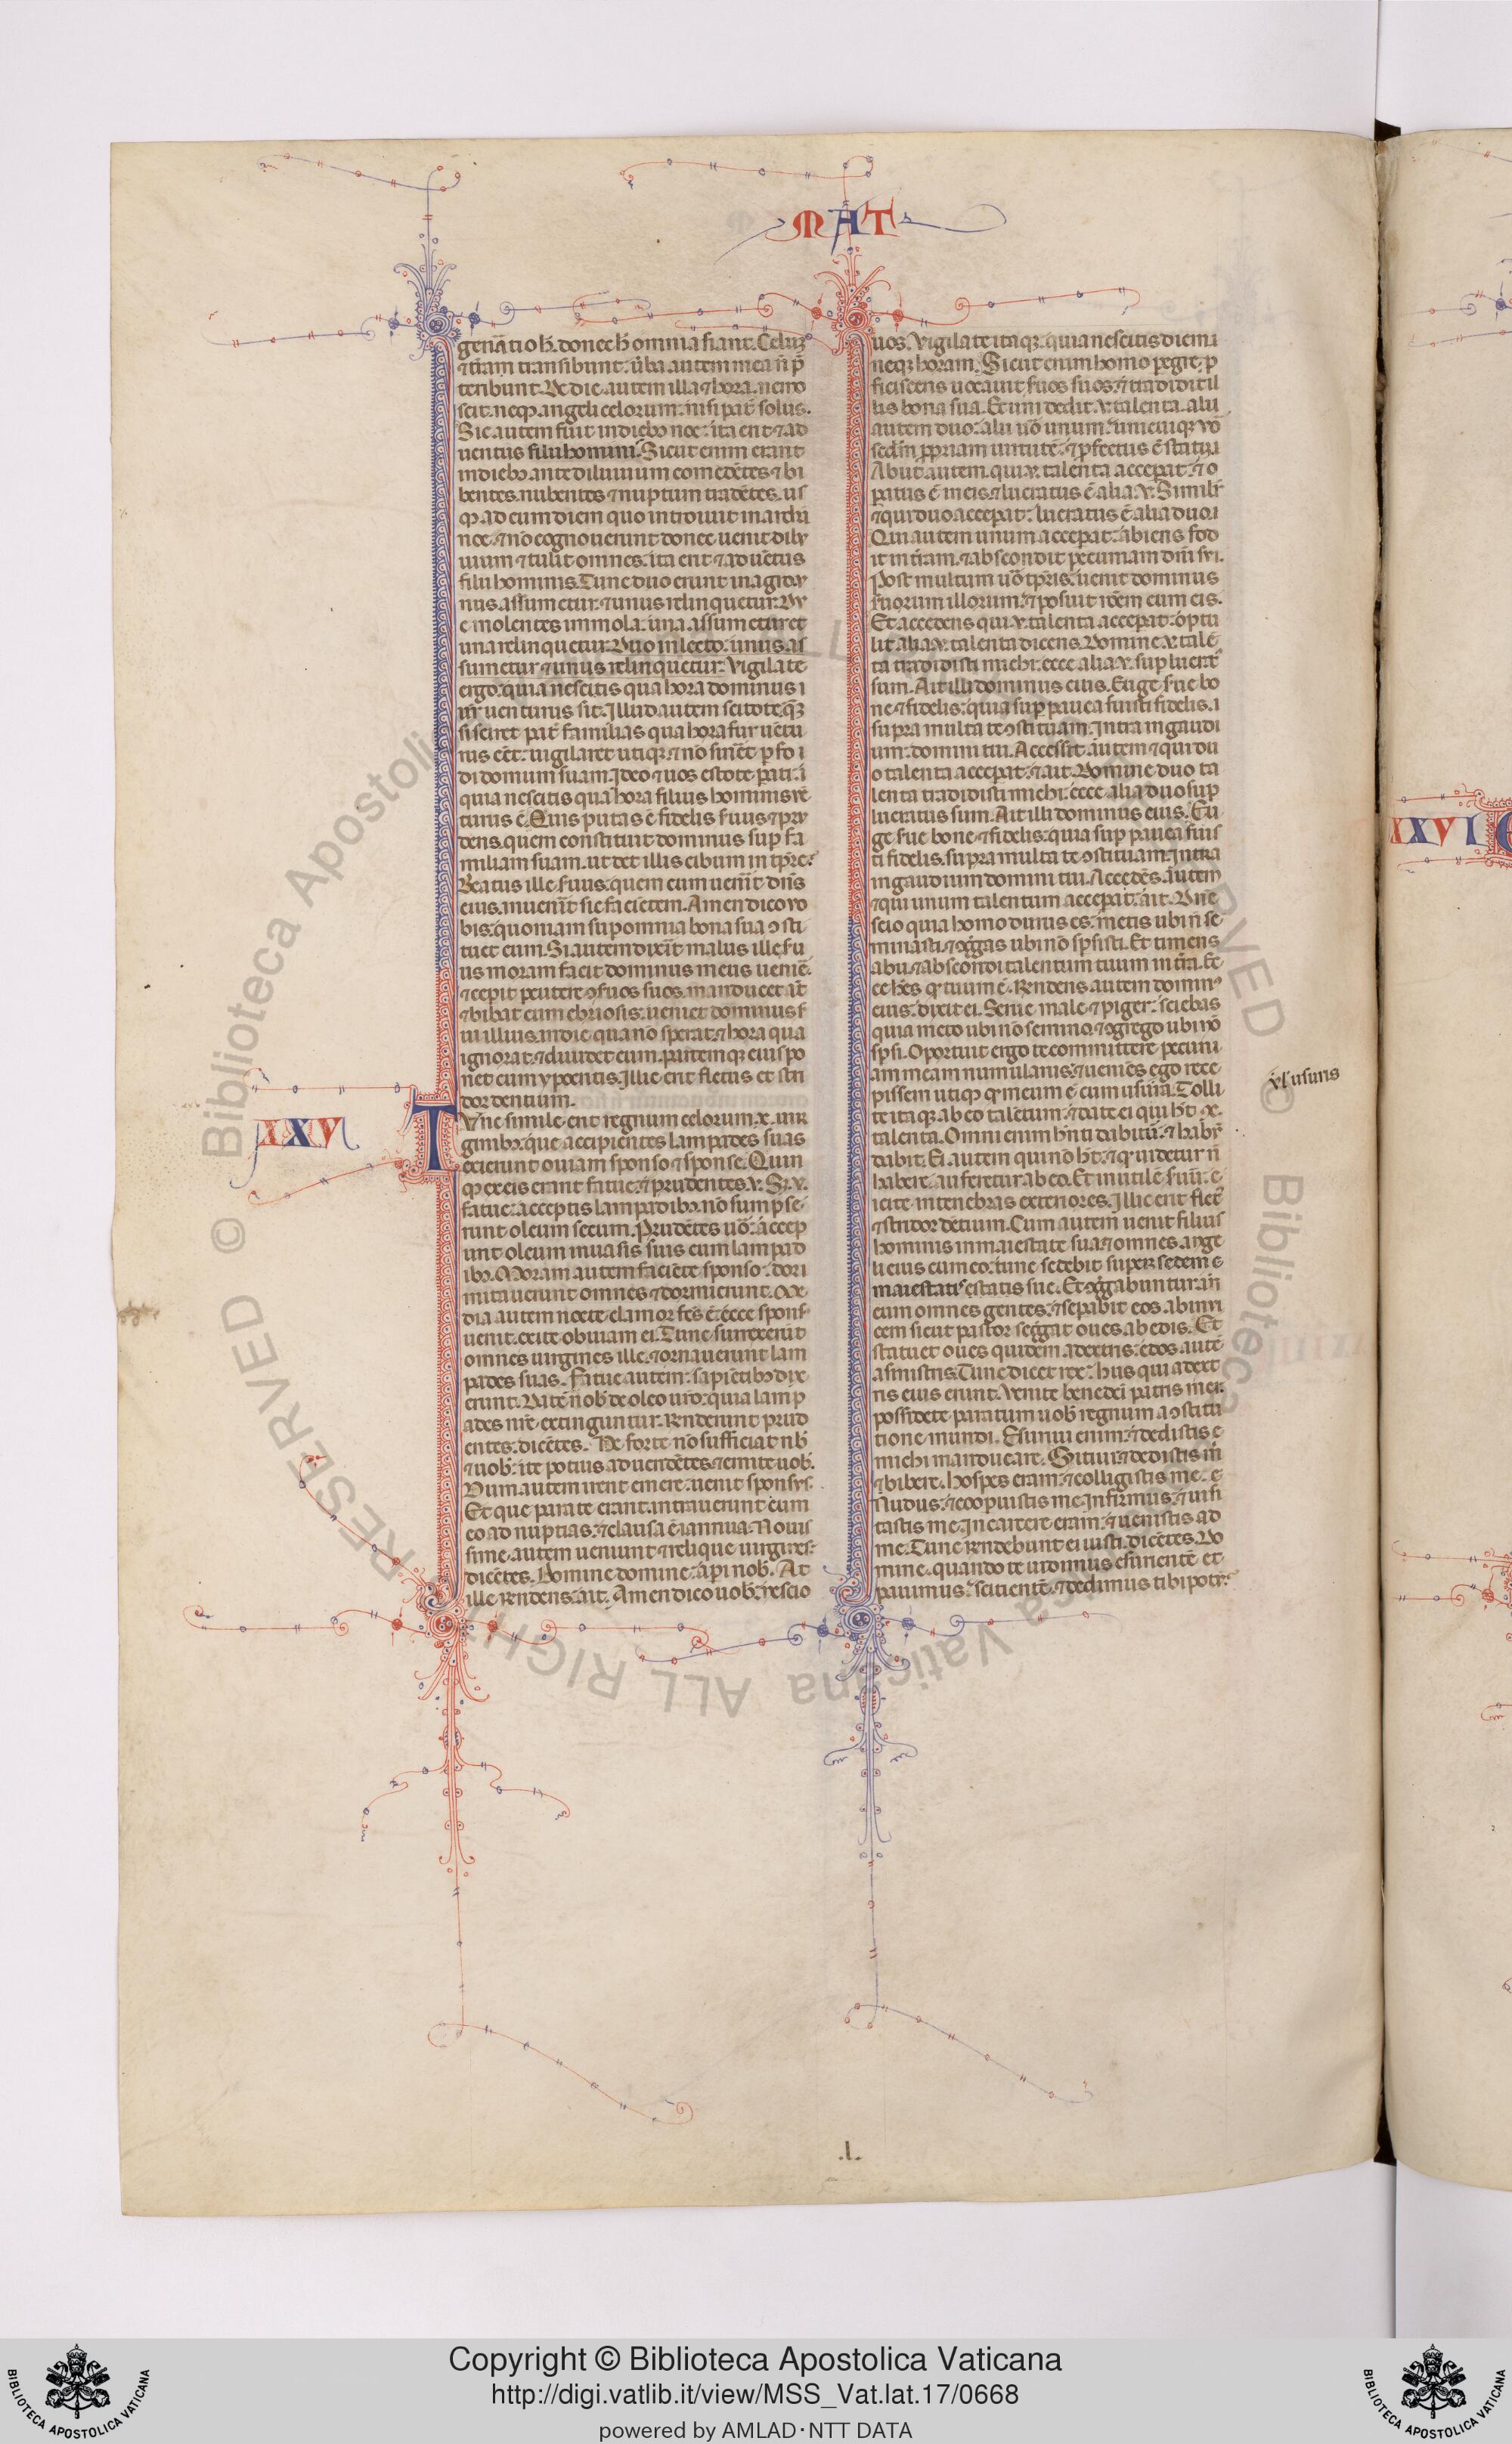 MAT
genatio h̄. donec h̄ omnia fiant. Celuʒ
⁊ t̄ram transibunt. u̇ba autem mea n̄ p̄
teribunt. De die autem illa ⁊ hora. nemo
scit. neqꝫ angeli celorum. nisi pat̄ solus.
Sic autem fuit in diebꝫ noe. ita erit ⁊ ad
uentus filii homini. Sicut enim erant
in diebꝫ ante diluuium comedētes ⁊ bi
bentes. nubentes ⁊ nuptum tradētes. us
qꝫ ad eum diem quo introiuit in archā
noe. ⁊ nō cognouerunt donec uenit dilu
uium ⁊ tulit omnes. ita erit ⁊ aduētus
filii hominis. Tunc duo erunt in agro. v
nus assumetur. ⁊ unus relinquetur. Du
e molentes in mola. una assumetur et
una relinquetur. Duo in lecto. unus as
sumetur ⁊ unus relinquetur. Vigilate
ergo. quia nescitis qua hora dominus
ur̄ uenturus sit. Illud autem scitote. qm̄
si sciret pat̄ familias qua hora fur uētu
rus eēt. uigilaret utiqꝫ. ⁊ nō sinēt ꝑfo
di domum suam. Ideo ⁊ uos estote parati.
quia nescitis qua hora filius hominis vē
turus ē. Quis putas ē fidelis s̄uus ⁊ pru
dens. quem constituit dominus suꝑ fa
miliam suam. ut det illis cibum in tp̄re.
Beatus ille s̄uus. quem cum uen̄it dn̄s
eius. inuen̄it sic faciētem. Amen dico vo
bis. quoniam suꝑ omnia bona sua ↄsti
tuet eum. Si autem dix̄it malus ille s̄u
us moram facit dominus meus ueniē.
⁊ cepit ꝑcutere ↄs̄uos suos. manducet āt
⁊ bibat cum ebriosis. ueniet dominus s̄
ui illius. in die qua nō sperat. ⁊ hora qua
ignorat. ⁊ diuidet eum. partemqꝫ eius po
net cum ypocritis. Illic erit fletus et stri
dor dentium.
XXV
Tunc simile erit regnum celorum. x. uir
ginibꝫ. que accipientes lampades suas
exierunt ouiam sponso ⁊ sponse. Quin
qꝫ ex eis erant fatue. ⁊ prudentes. v. Sꝫ. v.
fatue. acceptis lampadibꝫ. nō sumpse
runt oleum secum. Prudētes uō. accep
unt oleum in uasis suis cum lampad
ibꝫ. Moram autem faciēte sponso. dori
mitauerunt omnes ⁊ dormierunt. Me
dia autem nocte. clamor fc̄s ē. ecce spons
uenit. exite obuiam ei. Tunc surrexerūt
omnes uirgines ille. ⁊ ornauerunt lam
pades suas. Fatue autem. sapiētibꝫ dixe
erunt. Date nob̄ de oleo ur̄o. quia lamp
ades nr̄e extinguntur. Rn̄derunt prud
entes. dicētes. Ne forte nō sufficiat nb̄
⁊ uob̄. ite potius ad uendētes ⁊ emite uob̄.
Dum autem irent emere. uenit sponsus.
Et que parate erant. intrauerunt cum
eo ad nuptias. ⁊ clausa ē iannua. Nouis
sime autem ueniunt ⁊ relique uirgines.
dicētes. Domine domine. aꝑi nob̄. At
ille rn̄dens. ait. Amen dico uob̄. nescio
uos. Vigilate itaqꝫ. quia nescitis diem
neqꝫ horam. Sicut enim homo ꝑegre. ꝓ
ficiscens uocauit s̄uos suos. ⁊ tradidit il
lis bona sua. Et uni dedit. v. talenta. alii
autem duo. alii uō unum. unicuiqꝫ vō
scdm̄ ꝓpriam uirtutē. ⁊ ꝓfectus ē statim
Abiit autem. qui v. talenta acceꝑat. ⁊ o
ꝑatus ē in eis. ⁊ lucratus ē alia. v. Similr̄
⁊ qui duo acceꝑat. lucratus ē alia duo.
Qui autem unum acceꝑat. abiens fod
it in t̄ram. ⁊ abscondit pecuniam dn̄i sui.
Post multum uō tp̄ris. uenit dominus
s̄uorum illorum. ⁊ posuit rōem cum eis.
Et accedens qui v. talenta acceꝑat. optu
lit alia. v. talenta dicens. Domine. v. talē
ta tradidisti michi. ecce alia. v. suꝑlucrt̄
sum. Ait illi dominus eius. Euge s̄ue bo
ne ⁊ fidelis. quia suꝑ pauca fuisti fidelis.
supra multa te ↄstituam. Intra in gaudi
um domini tui. Accessit autem ⁊ qui du
o talenta acceꝑat. ⁊ ait. Domine duo ta
lenta tradidisti michi. ecce alia duo suꝑ
lucratus sum. Ait illi dominus eius. Eu
ge s̄ue bone ⁊ fidelis. quia suꝑ pauca fuis
ti fidelis. supra multa te ↄstituam. Intra
in gaudium domini tui. Accedēs. autem
⁊ qui unum talentum acceꝑat. ait. Dn̄e
scio quia homo durus es. metis ubi n̄ se
minasti. ⁊ ↄg̊gas ubi nō sp̄sisti. Et timens
abii. ⁊ abscondi talentum tuum in t̄ra. Ec
ce h̄es qͩ tuum ē. Rn̄dens autem domin⁹
eius. dixit ei. Serue male ⁊ piger. sciebas
quia meto ubi nō semino. ⁊ ↄgrego ubi nō
sp̄si. Oportuit ergo te committere pecuni
am meam numulariis. ⁊ ueniēs ego rece
pissem utiqꝫ qͩ meum ē cum usura. Tolli
te itaqꝫ ab eo talētum. ⁊ date ei qui h̄t. x.
talenta. Omni enim hn̄ti dabit᷑. ⁊ habū
dabit. Ei autem qui nō h̄t. ⁊ qͩ uidetur n̄
habere. auferetur ab eo. Et inutilē s̄uū. e
icite in tenebras exteriores. Illic erit flet⁹
⁊ stridor dētium. Cum autem uenit filius
hominis in maiestate sua. ⁊ omnes ange
li eius cum eo. tunc sedebit super sedem
maiestatis estatis sue. Et ↄg̊gabuntur an̄
eum omnes gentes. ⁊ seꝑabit eos ab inui
cem sicut pastor seg̊gat oues ab edis. Et
statuet oues quidem a dextris. edos autē
a sinistris. Tunc dicet rex. hiis qui a dext
ris eius erunt. Venite benedc̄i patris mei.
possidete paratum uob̄ regnum a ↄstitu
tione mundi. Esuriui enim. ⁊ dedistis
michi manducare. Sitiui. ⁊ dedistis m̄
⁊ bibere. hospes eram. ⁊ collegistis me.
Nudus. ⁊ cooꝑuistis me. Infirmus. ⁊ uisi
tastis me. In carcere eram. ⁊ uenistis ad
me. Tunc rn̄debunt ei iusti. dicētes. Do
mine. quando te uidimus esurientē et
pauimus. scitientē. ⁊ dedimus tibi potū.
ut̄ usuris
XXVI
.l.
Copyright © Biblioteca Apostolica Vaticana
http://digi.vatlib.it/view/MSS_Vat.lat.17/0668
powered by AMLAD·NTT DATA
BIBLIOTECA APOSTOLICA VATICANA
BIBLIOTECA APOSTOLICA VATICANA
© Biblioteca Apostolica Vaticana ALL RIGHTS RESERVED